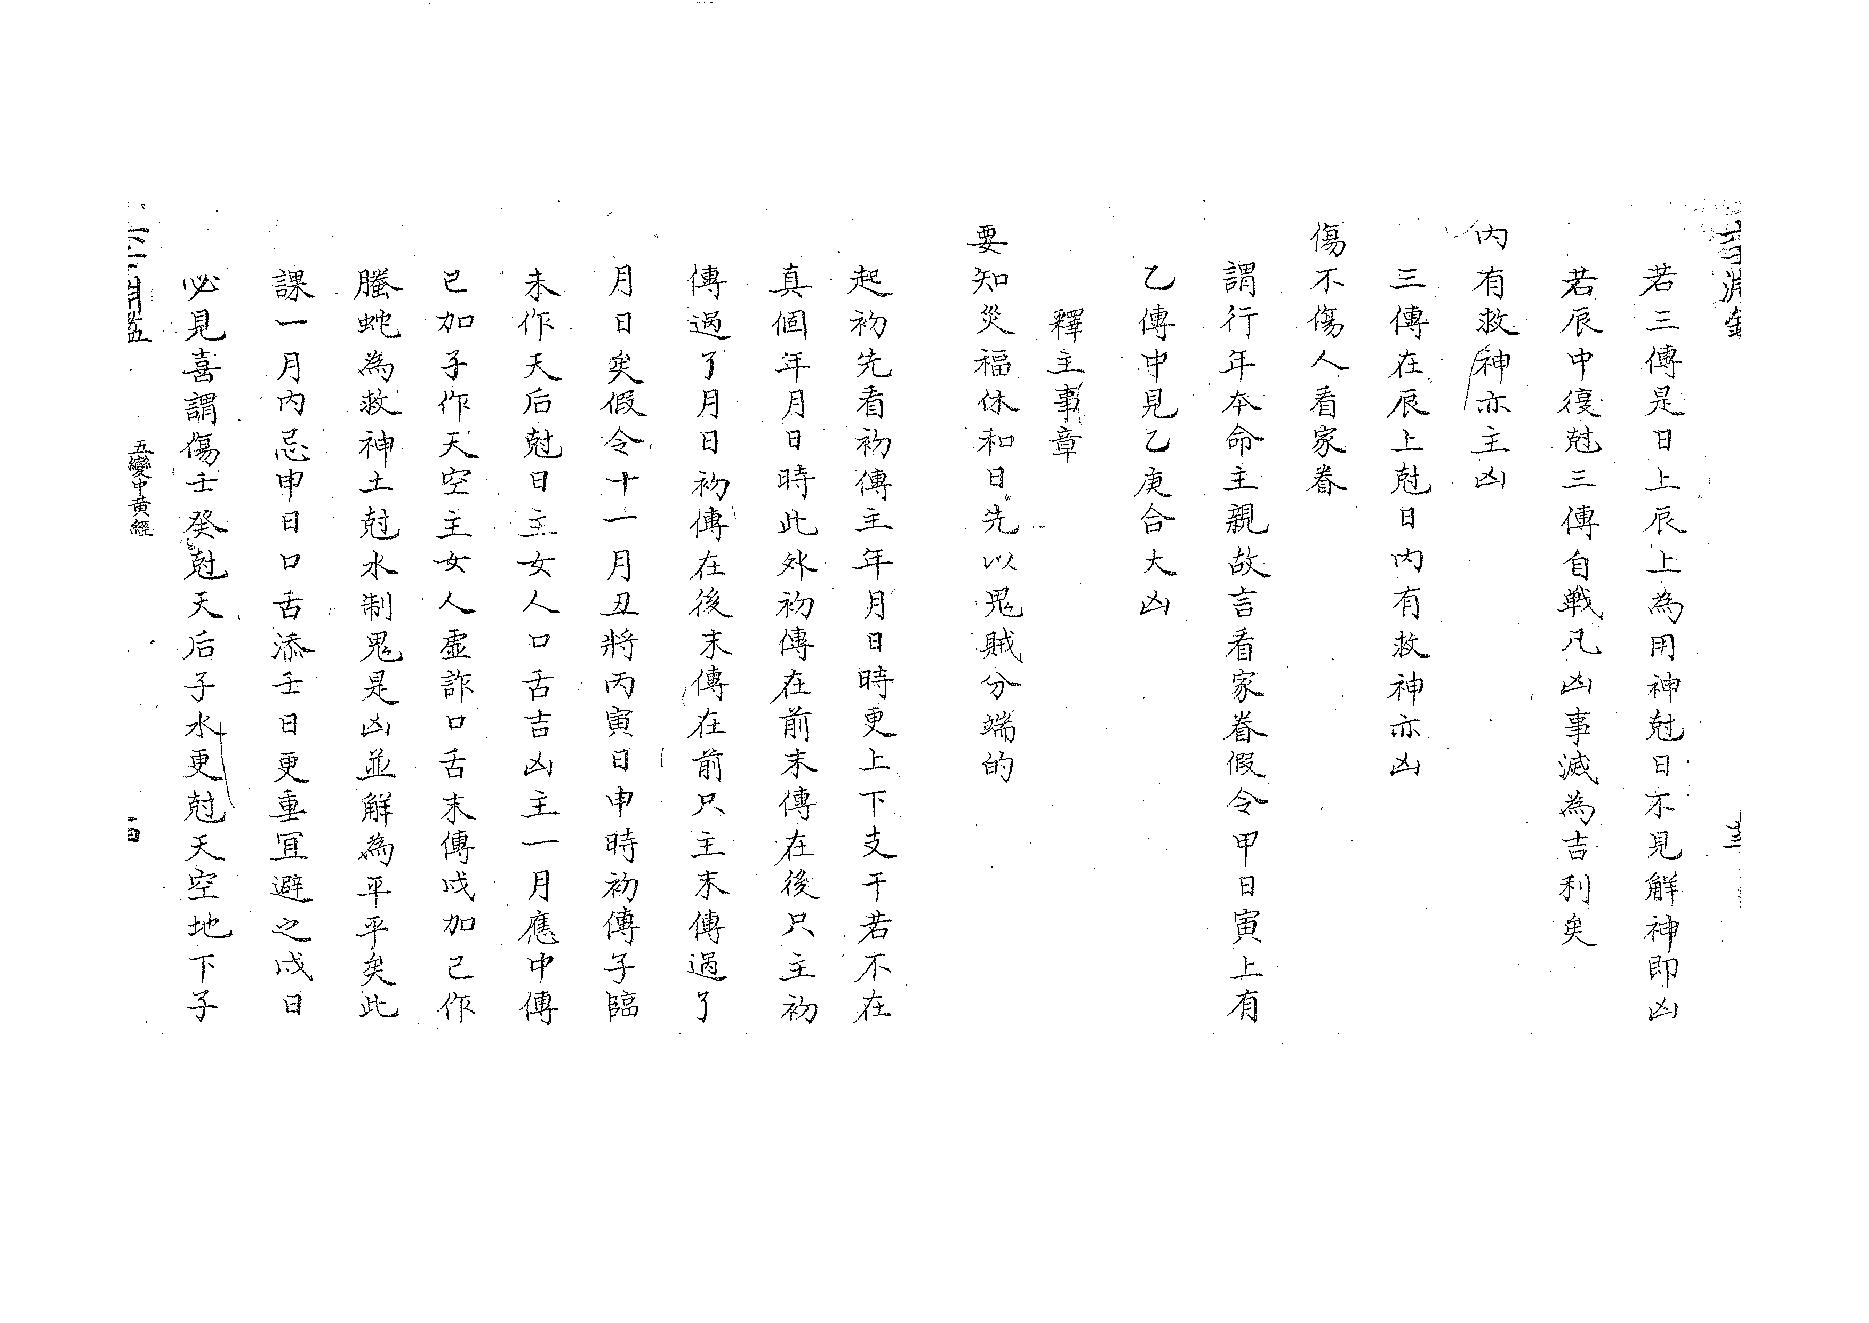 若三傳是日上辰上為用神尅日不見解神即凶
若辰中復尅三傳自戰凡凶事滅為吉利矣
內有救神亦主凶
三傳在辰上尅日內有救神亦凶
傷不傷人看家眷
謂行年本命主親故言看家眷假令甲日寅上有
乙傳申見乙庚合大凶
釋主事章
要知災福休和日先以鬼賊分端的
起初先看初傳主年月日時更上下支干若不在
真個年月日時此外初傳在前末傳在後只主初
傳過了月日初傳在後末傳在前只主末傳過了
月日矣假令十一月丑將丙寅日申時初傳子臨
未作天后尅日主女人口舌吉凶主一月應中傳
巳加子作天空主女人虛詐口舌末傳戌加己作
螣蛇為救神土尅水制鬼是凶並解為平平矣此
課一月內忌申日口舌添壬日更重宜避之戌日
必見喜謂傷壬癸尅天后子水更尅天空地下子
五變中黃經